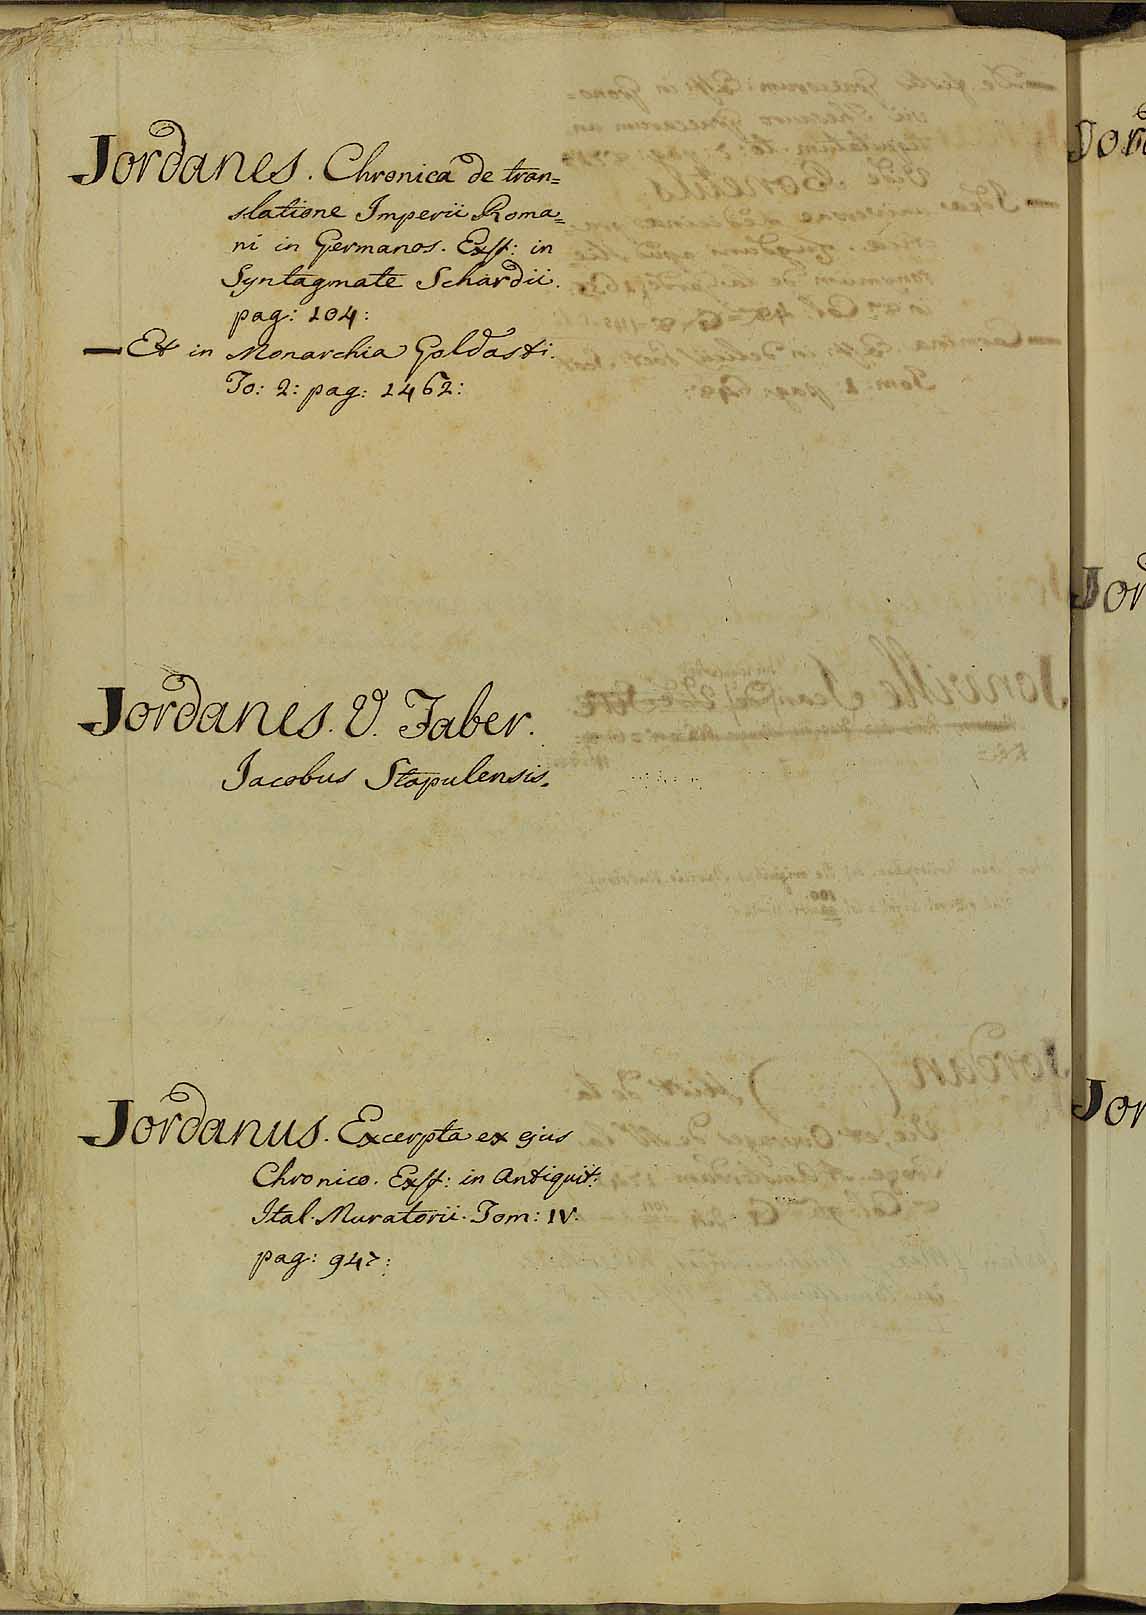 Jordanes. Chronica de tran=
slatione Imperii Roma=
ni in Germanos. Exst: in
Syntagmate Schardii.
pag: 104:
— Et in Monarchia Goldasti.
To: 2: pag: 1462:
Jordanes. V. Faber.
Jacobus Stapulensis.
Jordanus. Excerpta ex ejus
Chronico. Exst: in Antiquit:
Ital. Muratorii. Tom: IV.
pag: 947: